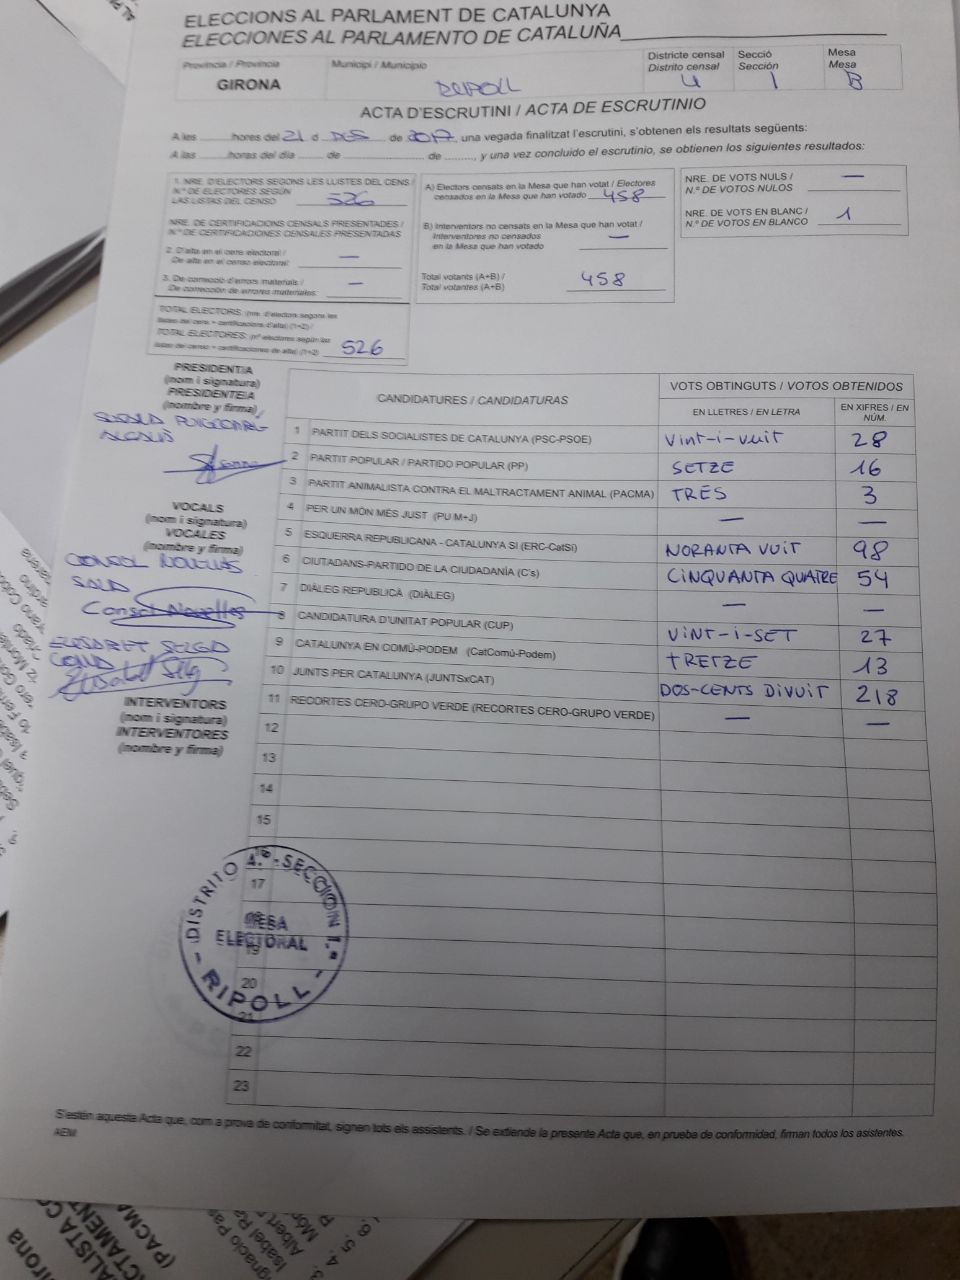 ELECCIONS AL PARLAMENT DE CATALUNYA
ELECCIONES AL PARLAMENTO DE CATALUÑA
Província / Provincia
GIRONA
Municipi / Municipio
RIPOLL
Districte censal
Distrito censal
4
Secció
Sección
1
Mesa
Mesa
B
ACTA D'ESCRUTINI / ACTA DE ESCRUTINIO
A les ......... hores del 21 d DES de 2017, una vegada finalitzat l'escrutini, s'obtenen els resultats següents:
A las ......... horas del día ........ de ........................ de ........, y una vez concluido el escrutinio, se obtienen los siguientes resultados:
1. NRE. D'ELECTORS SEGONS LES LLISTES DEL CENS /
N.º DE ELECTORES SEGÚN
LAS LISTAS DEL CENSO 526
NRE. DE CERTIFICACIONS CENSALS PRESENTADES /
N.º DE CERTIFICACIONES CENSALES PRESENTADAS
2. D'alta en el cens electoral /
De alta en el censo electoral: —
3. De correcció d'errors materials /
De corrección de errores materiales: —
TOTAL ELECTORS: (nre. d'electors segons les
llistes del cens + certificacions d'alta) (1+2) /
TOTAL ELECTORES: (nº electores según las
listas del censo + certificaciones de alta) (1+2) 526
A) Electors censats en la Mesa que han votat / Electores
censados en la Mesa que han votado 458
B) Interventors no censats en la Mesa que han votat /
Interventores no censados
en la Mesa que han votado —
Total votants (A+B) /
Total votantes (A+B) 458
NRE. DE VOTS NULS /
N.º DE VOTOS NULOS —
NRE. DE VOTS EN BLANC /
N.º DE VOTOS EN BLANCO 1
PRESIDENT/A
(nom i signatura)
PRESIDENTE/A
(nombre y firma)
VOCALS
(nom i signatura)
VOCALES
(nombre y firma)
CONSOL NOUELLAS
SALA
Consol Nouellas
ELISABET
Elisabet
INTERVENTORS
(nom i signatura)
INTERVENTORES
(nombre y firma)
CANDIDATURES / CANDIDATURAS
VOTS OBTINGUTS / VOTOS OBTENIDOS
EN LLETRES / EN LETRA
EN XIFRES / EN NÚM.
1 PARTIT DELS SOCIALISTES DE CATALUNYA (PSC-PSOE) Vint-i-vuit 28
2 PARTIT POPULAR / PARTIDO POPULAR (PP) SETZE 16
3 PARTIT ANIMALISTA CONTRA EL MALTRACTAMENT ANIMAL (PACMA) TRES 3
4 PER UN MÓN MÉS JUST (PU M+J) — —
5 ESQUERRA REPUBLICANA - CATALUNYA SÍ (ERC-CatSí) NORANTA VUIT 98
6 CIUTADANS-PARTIDO DE LA CIUDADANÍA (C's) CINQUANTA QUATRE 54
7 DIÀLEG REPUBLICÀ (DIÀLEG) — —
8 CANDIDATURA D'UNITAT POPULAR (CUP) VINT-I-SET 27
9 CATALUNYA EN COMÚ-PODEM (CatComú-Podem) TRETZE 13
10 JUNTS PER CATALUNYA (JUNTSxCAT) DOS-CENTS DIVUIT 218
11 RECORTES CERO-GRUPO VERDE (RECORTES CERO-GRUPO VERDE) — —
12
13
14
15
17
19
20
21
22
23
DISTRITO 4.º - SECCION 1.ª
MESA
ELECTORAL
- RIPOLL -
S'estén aquesta Acta que, com a prova de conformitat, signen tots els assistents. / Se extiende la presente Acta que, en prueba de conformidad, firman todos los asistentes.
AEM